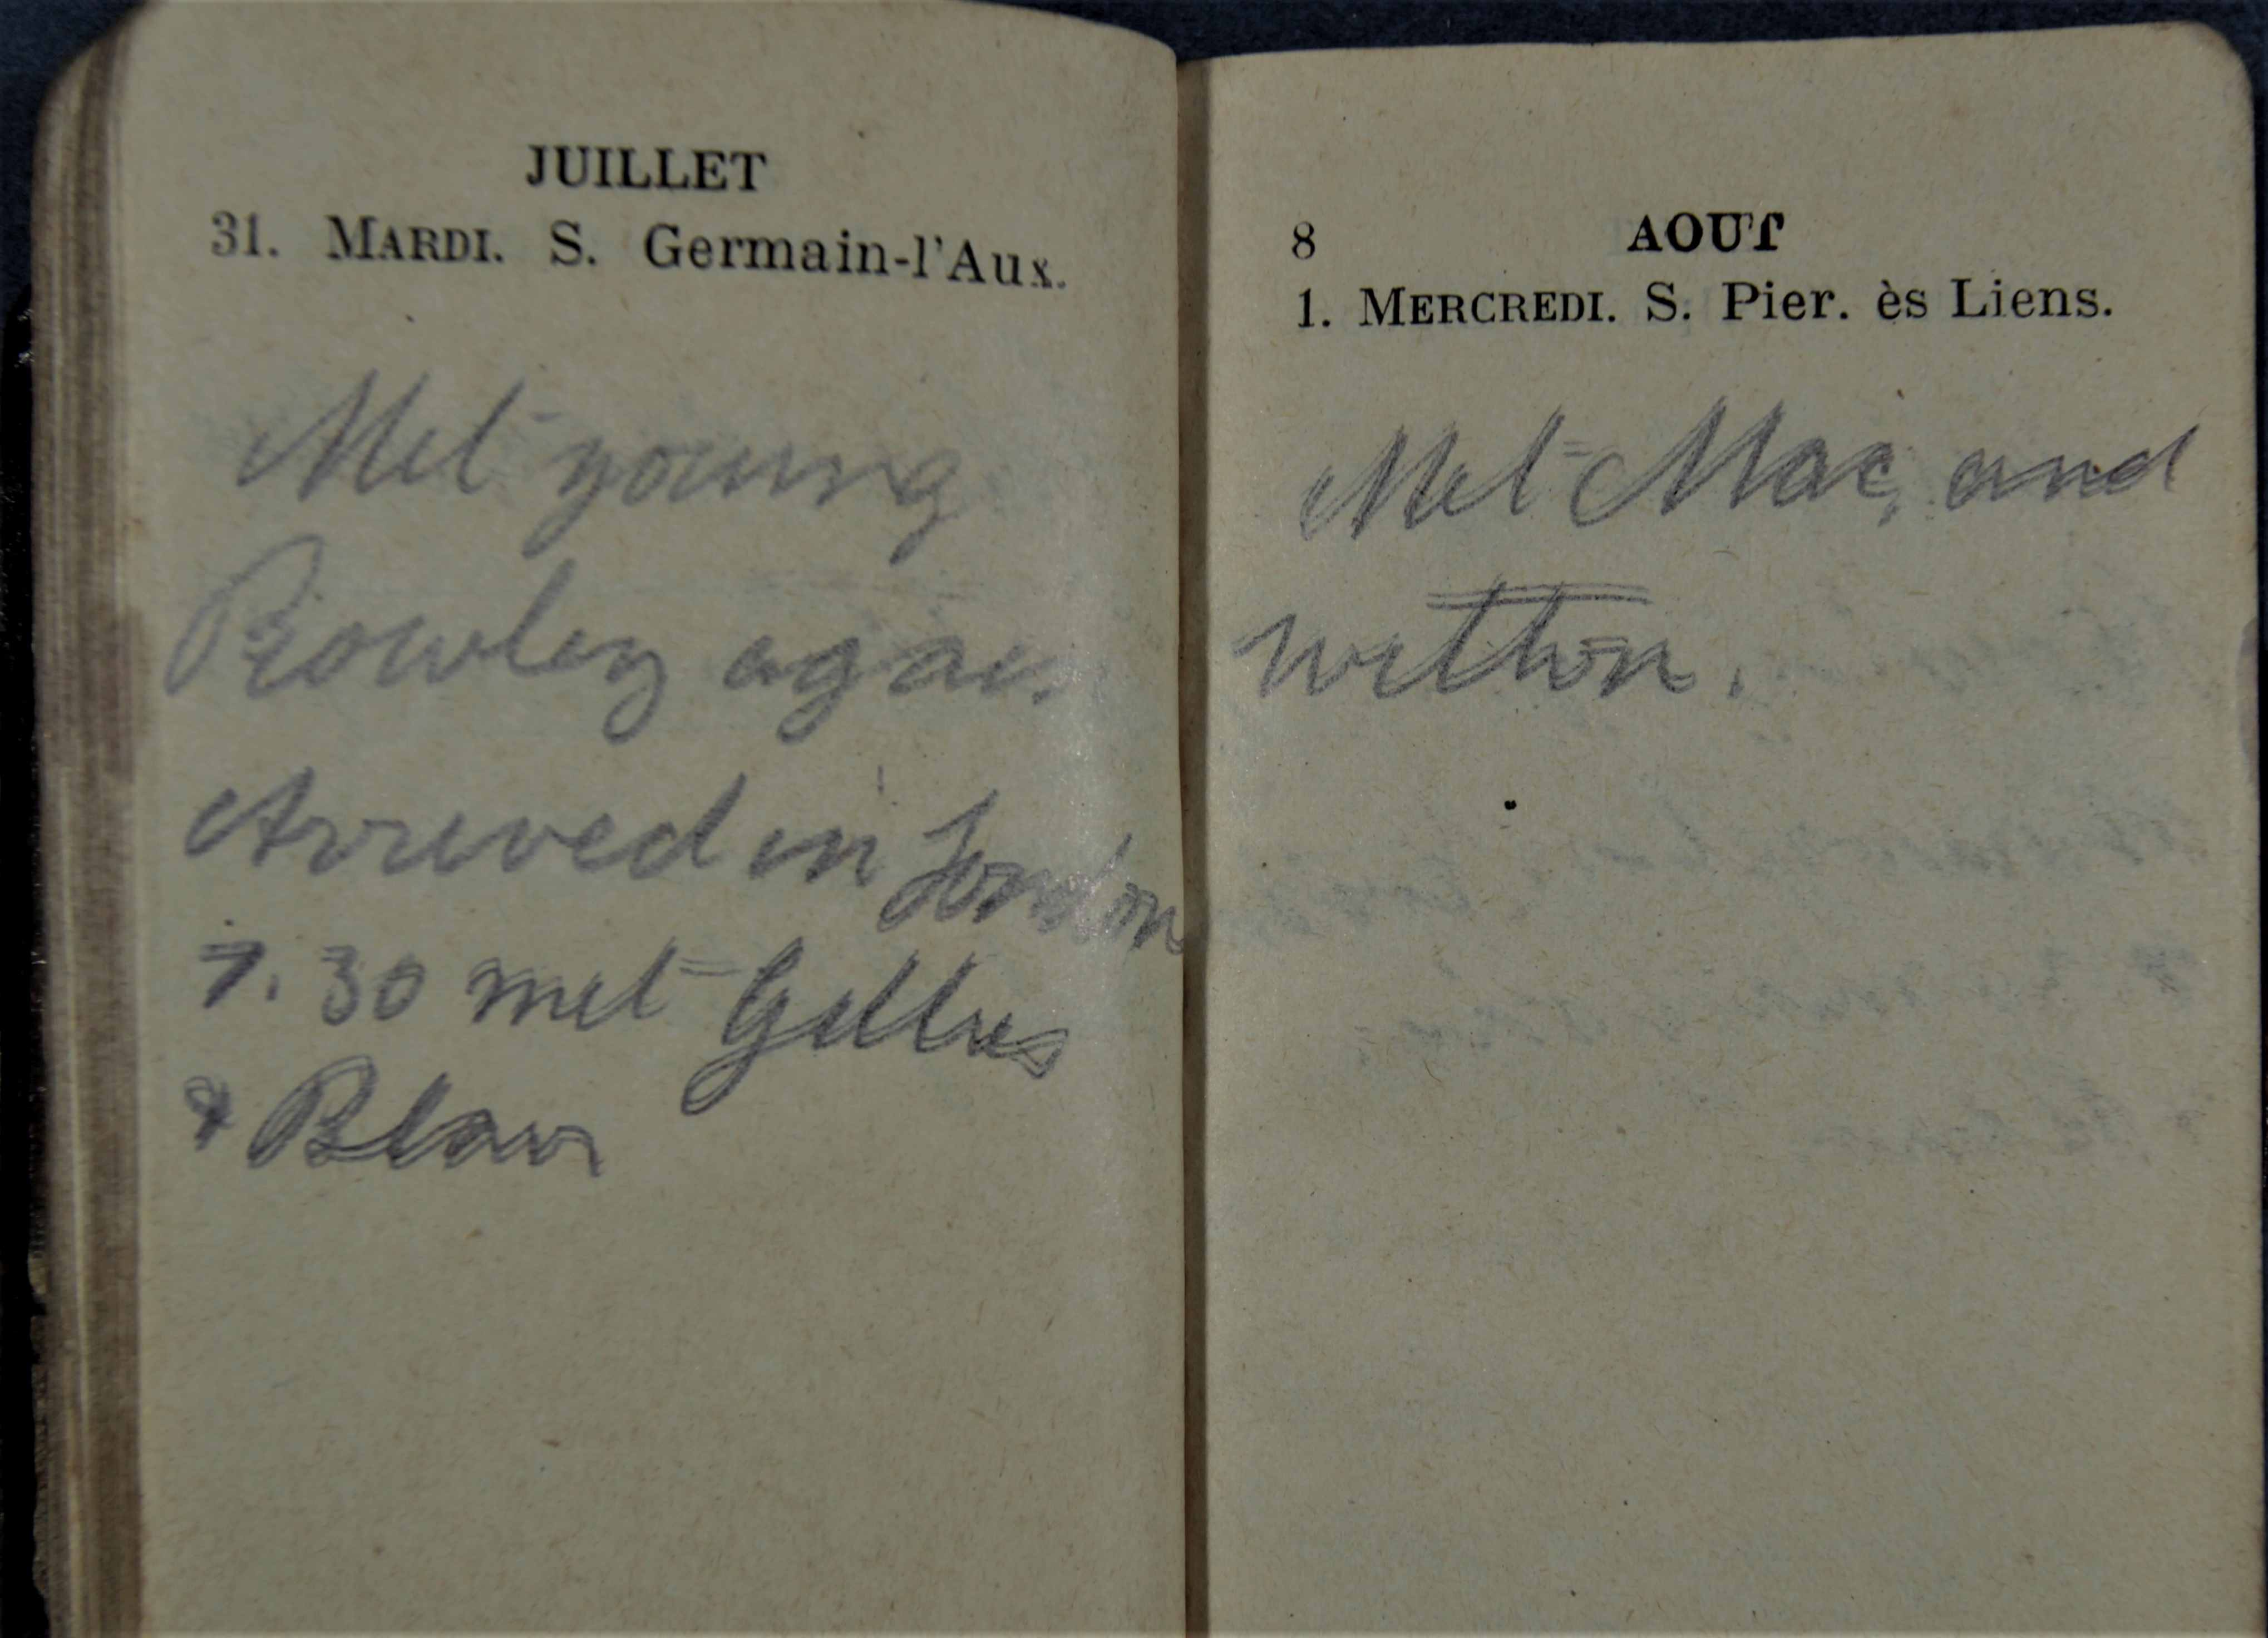 JUILLET
31. MARDI. S. Germain-l'Aux.
Met young
Rowley again
Arrived in London
7.30 met Gillies
& Blair
8 AOUT
1. MERCREDI. S. Pier. ès Liens.
Met Mac, and
Witton.